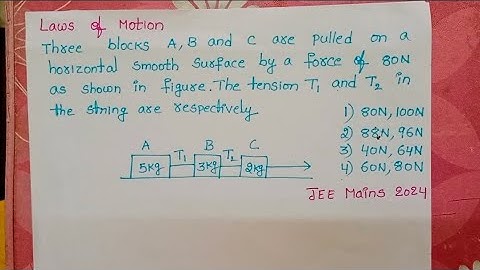 Laws of Motion
Three blocks A, B and C are pulled on a
horizontal smooth surface by a force of 80N
as shown in figure. The tension T1 and T2 in
the string are respectively
1) 80N, 100N
2) 88N, 96N
3) 40N, 64N
4) 60N, 80N
A B C
T1 T2
5kg 3kg 2kg
JEE Mains 2024